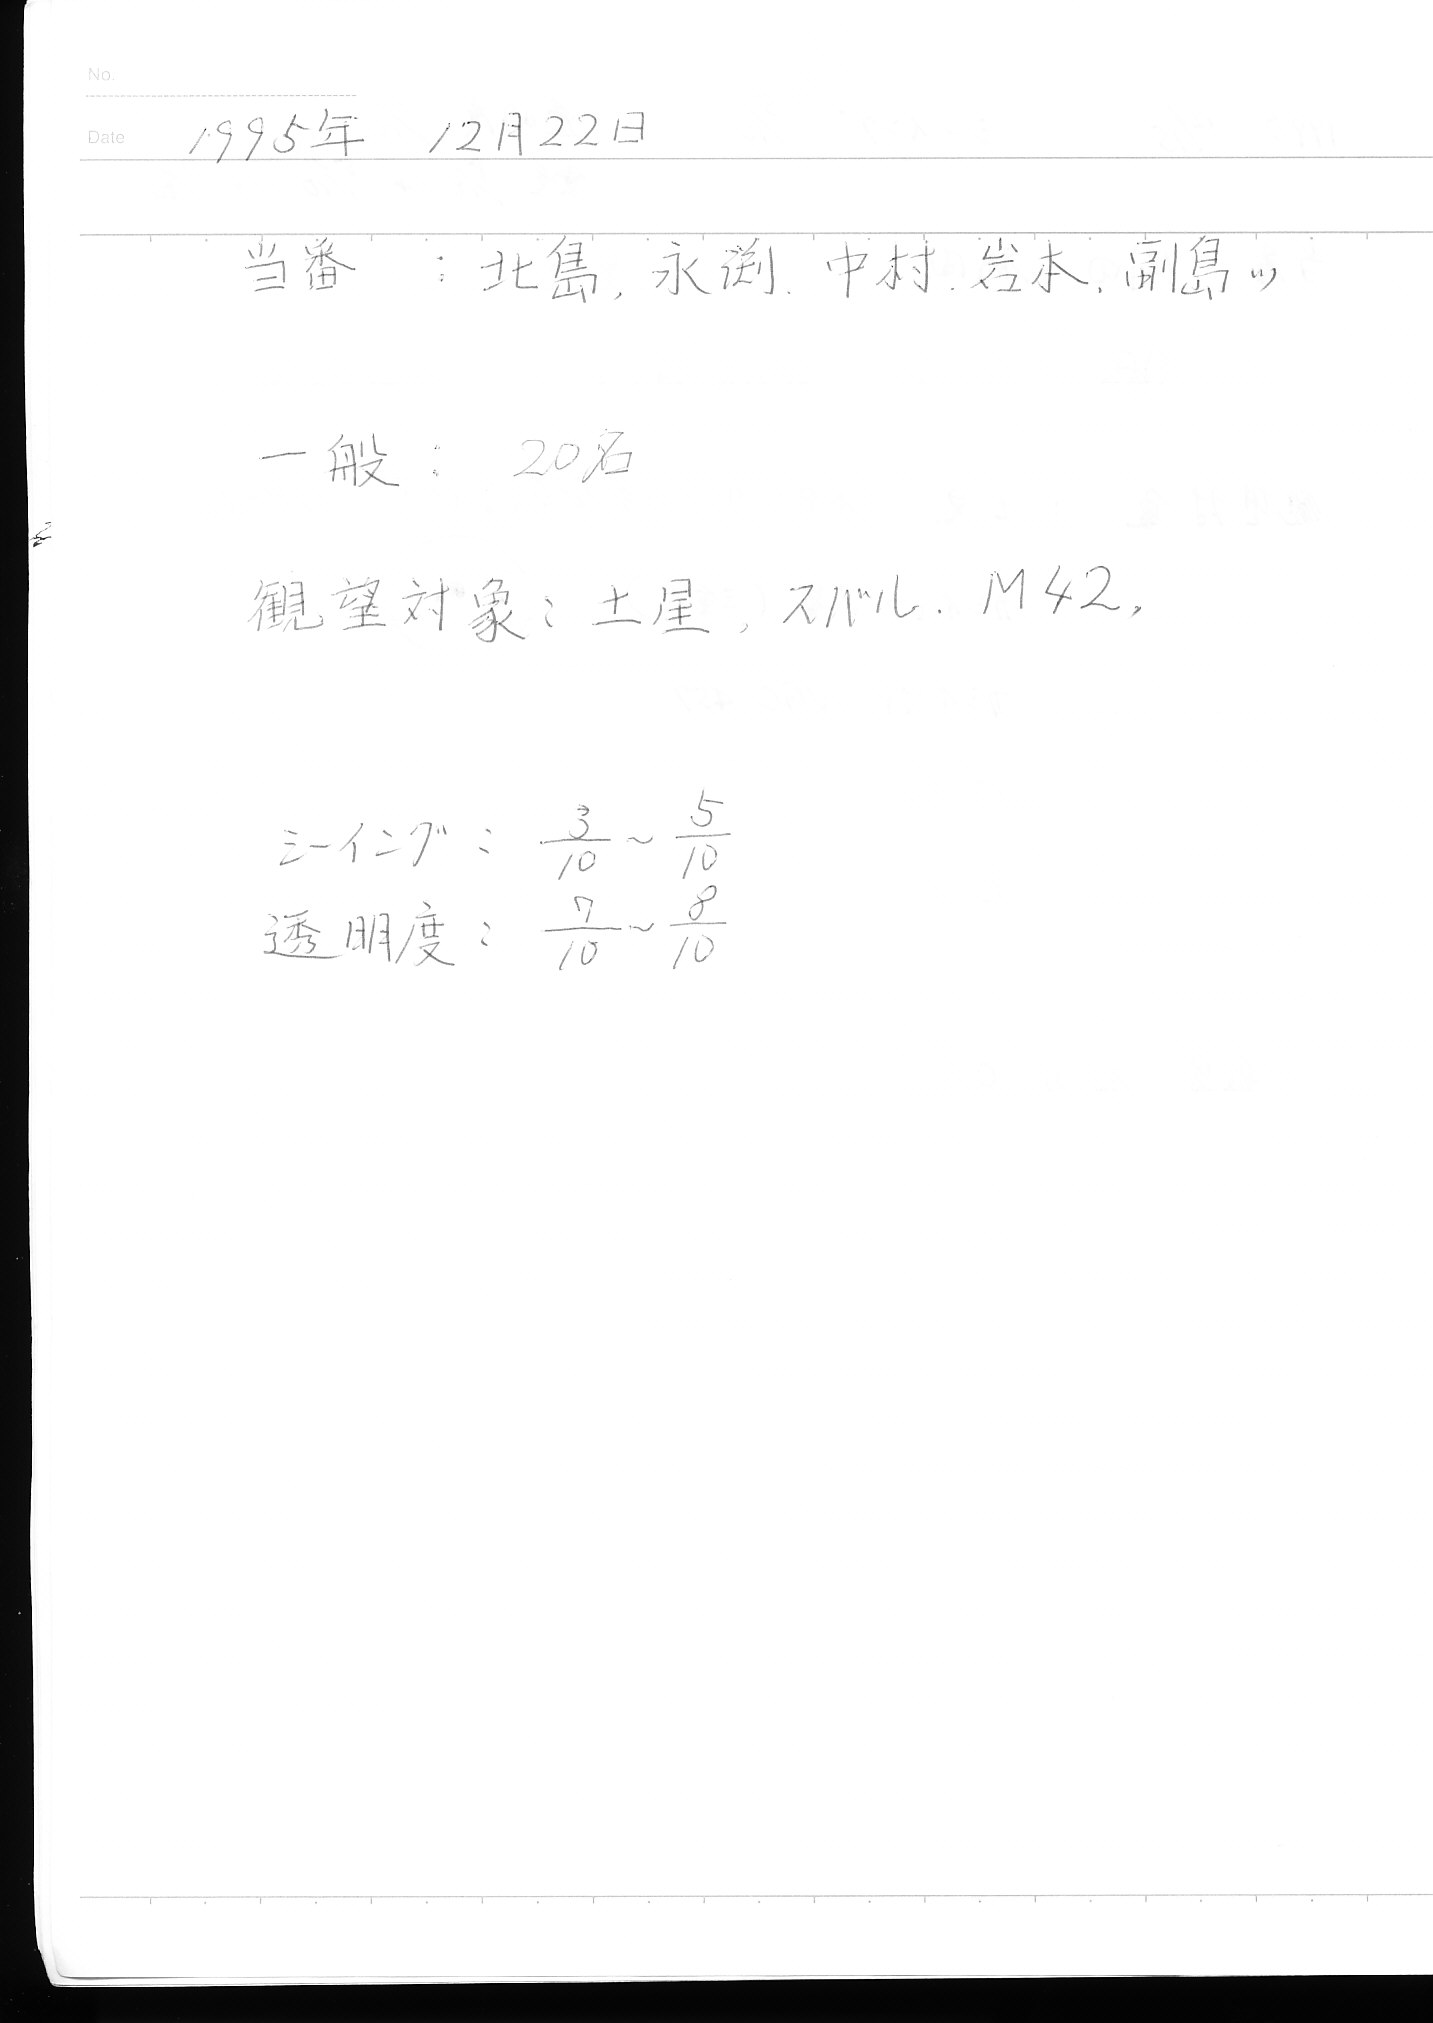 No.
Date 1995年 12月22日
当番 : 北島, 永渕. 中村. 岩本. 副島ッ
一般 : 20名
観望対象 : 土星, スバル. M42,
シーイング : 3/10 ~ 5/10
透明度 : 7/10 ~ 8/10